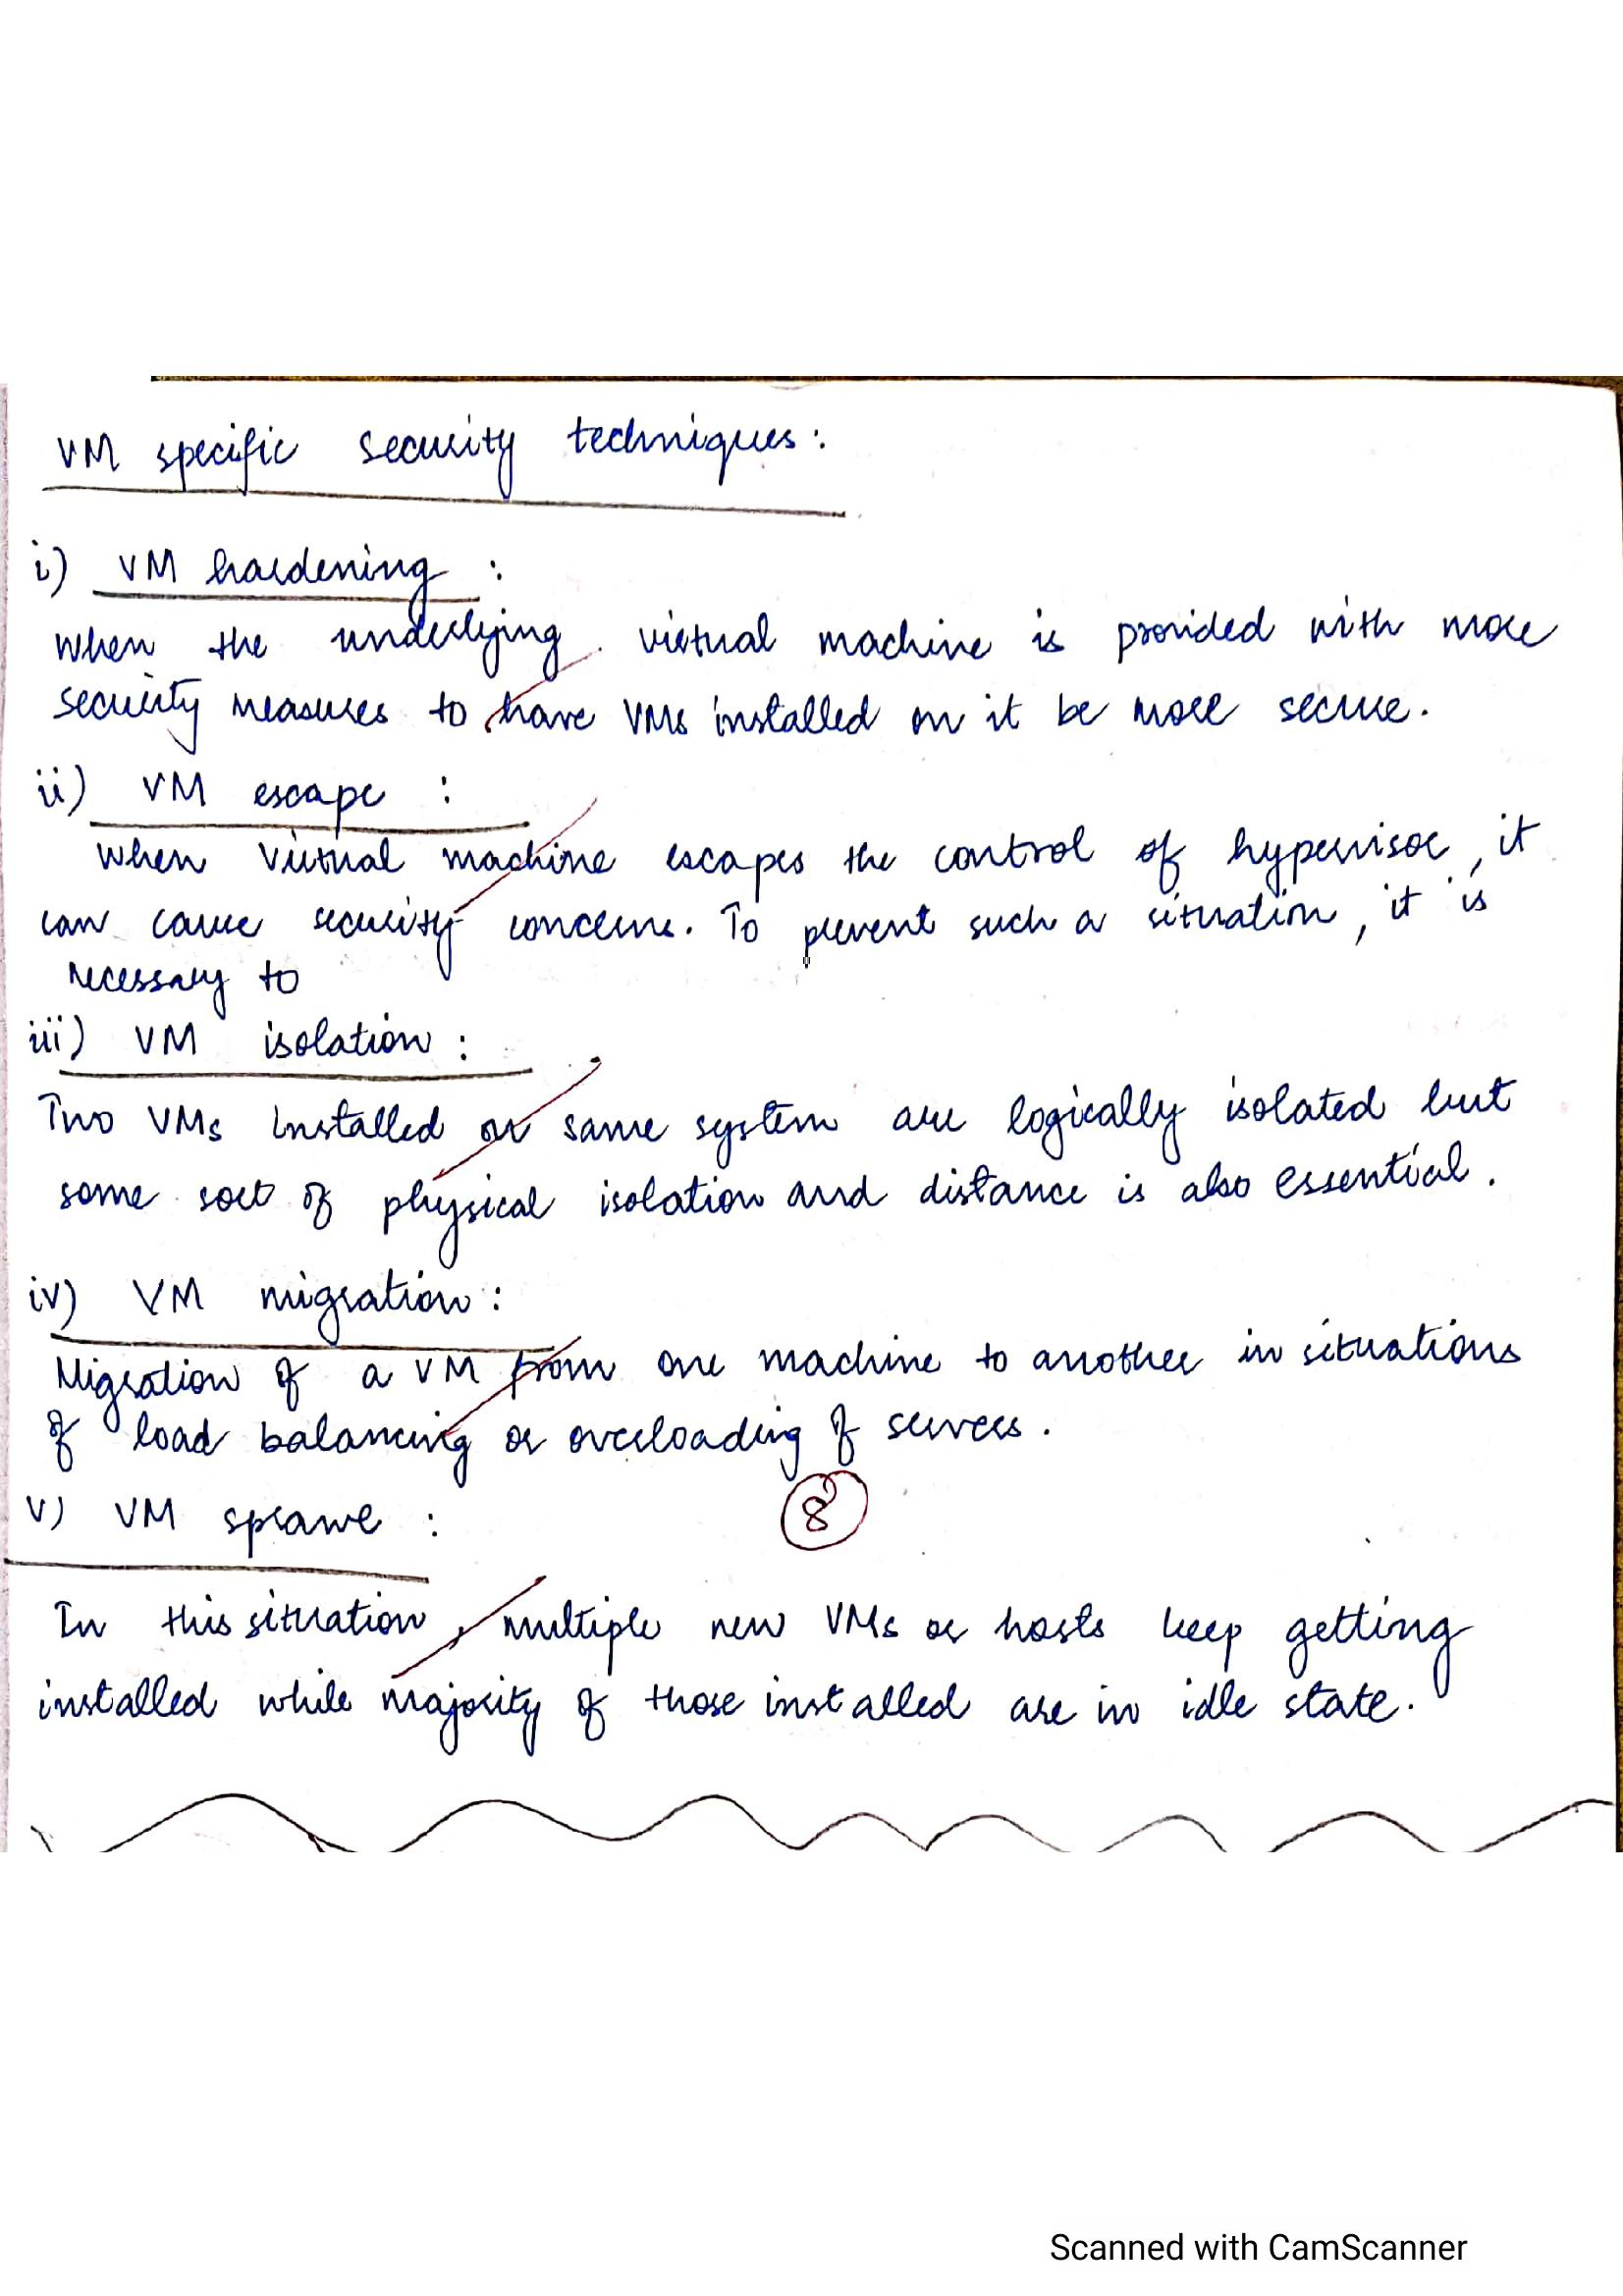 VM specific security techniques:
i) VM hardening :
When the underlying virtual machine is provided with more
security measures to have VMs installed on it be more secure.
ii) VM escape :
When virtual machine escapes the control of hypervisor, it
can cause security concerns. To prevent such a situation, it is
necessary to
iii) VM isolation :
Two VMs installed on same system are logically isolated but
some sort of physical isolation and distance is also essential.
iv) VM migration :
Migration of a VM from one machine to another in situations
of load balancing or overloading of servers.
8
v) VM sprawl :
In this situation, multiple new VMs or hosts keep getting
installed while majority of those installed are in idle state.
Scanned with CamScanner